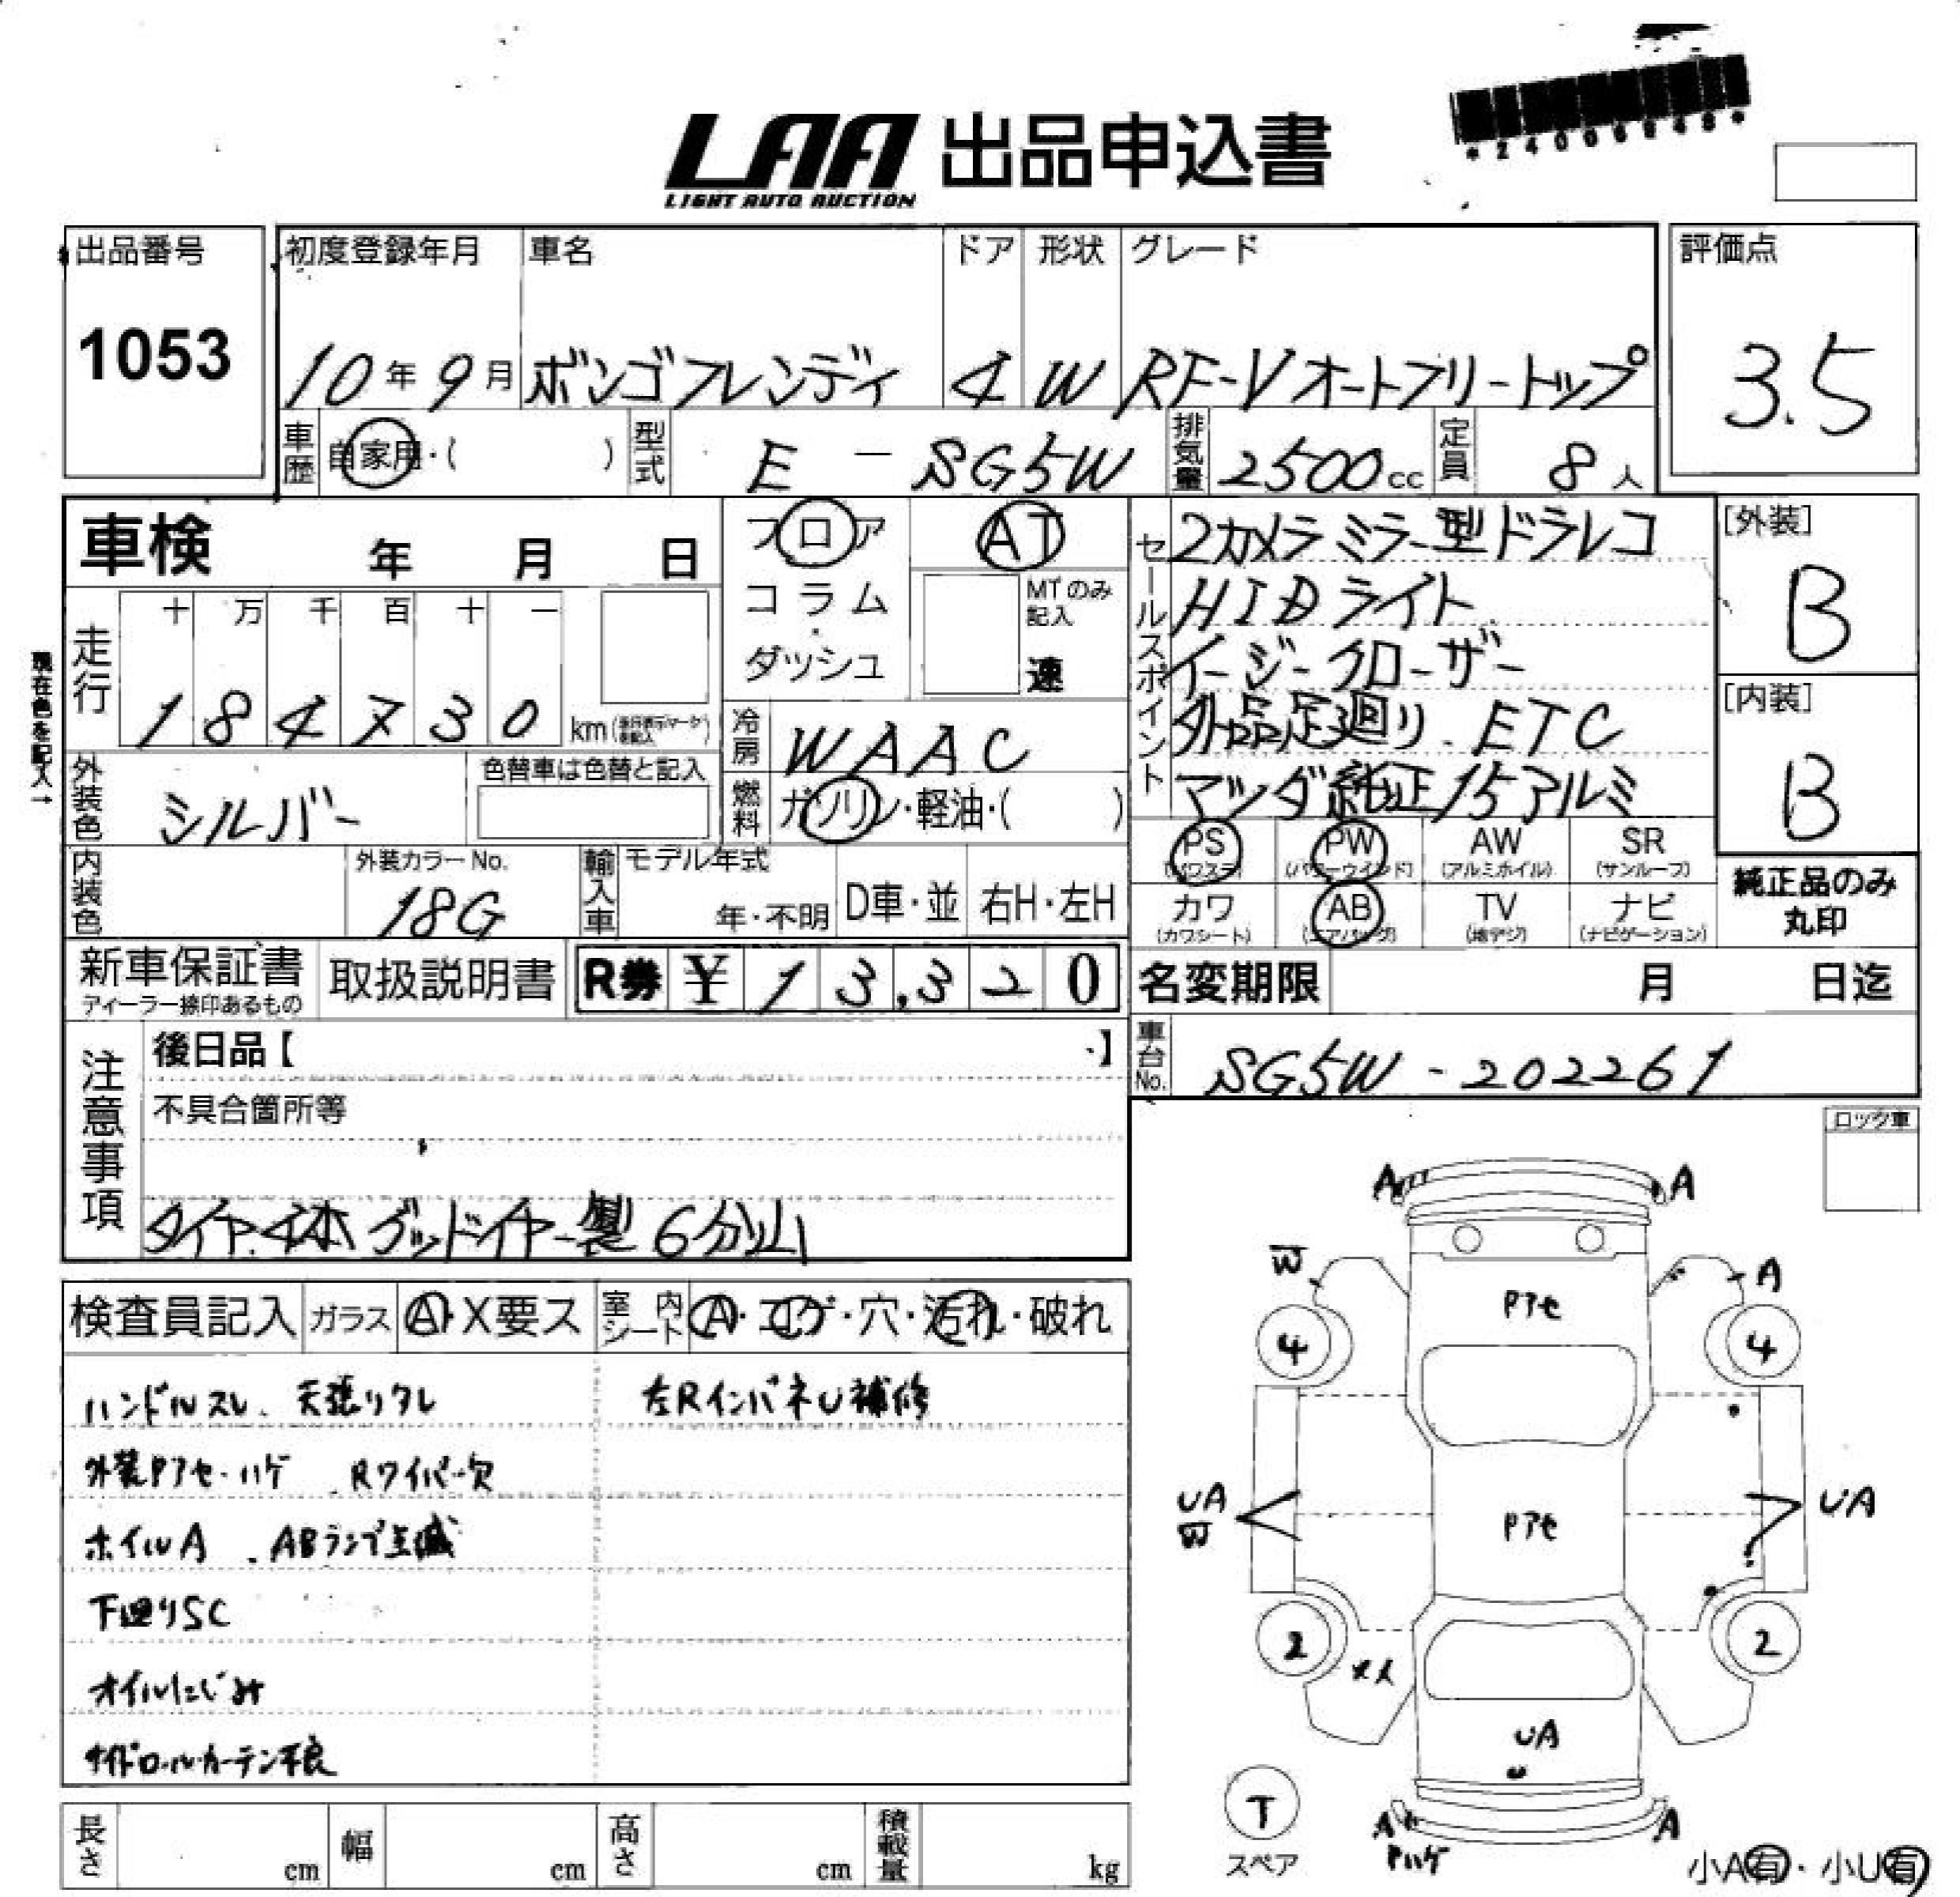 *24006843*
LAA 出品申込書
LIGHT AUTO AUCTION
出品番号 初度登録年月 車名 ドア 形状 グレード 評価点
1053 10年9月 ボンゴフレンディ 4 W RF-Vオートフリートップ 3.5
車歴 自家用・( ) 型式 E - SG5W 排気量 2500cc 定員 8人
車検 年 月 日
フロア
コラム
・
ダッシュ
AT
MTのみ
記入
速
セールスポイント
2カメラミラー型ドラレコ
HIDライト
イージークローザー
外品足廻り、ETC
マツダ純正15アルミ
[外装]
B
[内装]
B
現在色を記入→
走行 十 万 千 百 十 一
1 8 4 7 3 0 km
冷房 WAAC
燃料 ガソリン・軽油・( )
外装色 シルバー 色替車は色替と記入
内装色 外装カラーNo. 18G
輸入車 モデル年式 年・不明 D車・並 右H・左H
PS (パワステ) PW (パワーウインド) AW (アルミホイル) SR (サンルーフ)
カワ (カワシート) AB (エアバッグ) TV (地デジ) ナビ (ナビゲーション)
純正品のみ
丸印
新車保証書 取扱説明書 R券 ¥13,320
ディーラー捺印あるもの
名変期限 月 日迄
車台No. SG5W-202261
注意事項
後日品【 】
不具合箇所等
タイヤ4本グッドイヤー製6分山
ロック車
検査員記入 ガラス A・X要ス 室内シート A・コゲ・穴・汚れ・破れ
ハンドルスレ、天張りタレ 左RインパネU補修
外装Pアセ・ハゲ、Rワイパー欠
ホイルA、ABランプ点滅
下廻りSC
オイルにじみ
サイドロールカーテン不良
A A
W A
Pアセ
4 4
UA
W
Pアセ
UA
2 2
メス
UA
U
T
スペア
A A
Pハゲ
小A有・小U有
長さ cm 幅 cm 高さ cm 積載量 kg